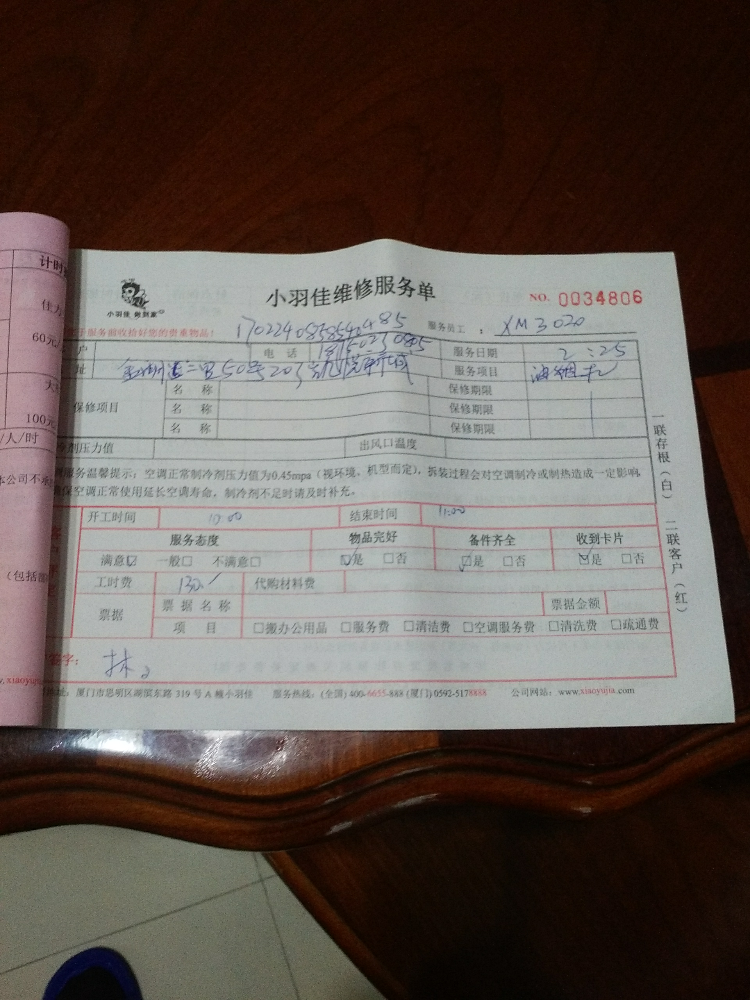 计时
佳力
60元/
大
100元
/人/时
本公司不承
（包括
.xiaoyujia.
小羽佳 做到家
小羽佳维修服务单
NO. 0034806
服务验收恰好您的贵重物品！
服务员工： XM3020
户 电话 服务日期 2:25
址 服务项目
保修项目 名称 保修期限
名称 保修期限
名称 保修期限
冷剂压力值 出风口温度
服务温馨提示：空调正常制冷剂压力值为0.45mpa（视环境、机型而定），拆装过程会对空调制冷或制热造成一定影响,
保空调正常使用延长空调寿命，制冷剂不足时请及时补充。
开工时间 10:00 结束时间 11:00
服务态度 物品完好 备件齐全 收到卡片
满意☑ 一般□ 不满意□ ☑是 □否 ☑是 □否 ☑是 □否
工时费 130 代购材料费
票据 票据名称 票据金额
项目 □搬办公用品 □服务费 □清洁费 □空调服务费 □清洗费 □疏通费
签字： 林
地址：厦门市思明区湖滨东路 319 号 A 幢小羽佳 服务热线：(全国) 400-6655-888 (厦门) 0592-5178888 公司网站：www.xiaoyujia.com
一联存根（白） 二联客户（红）